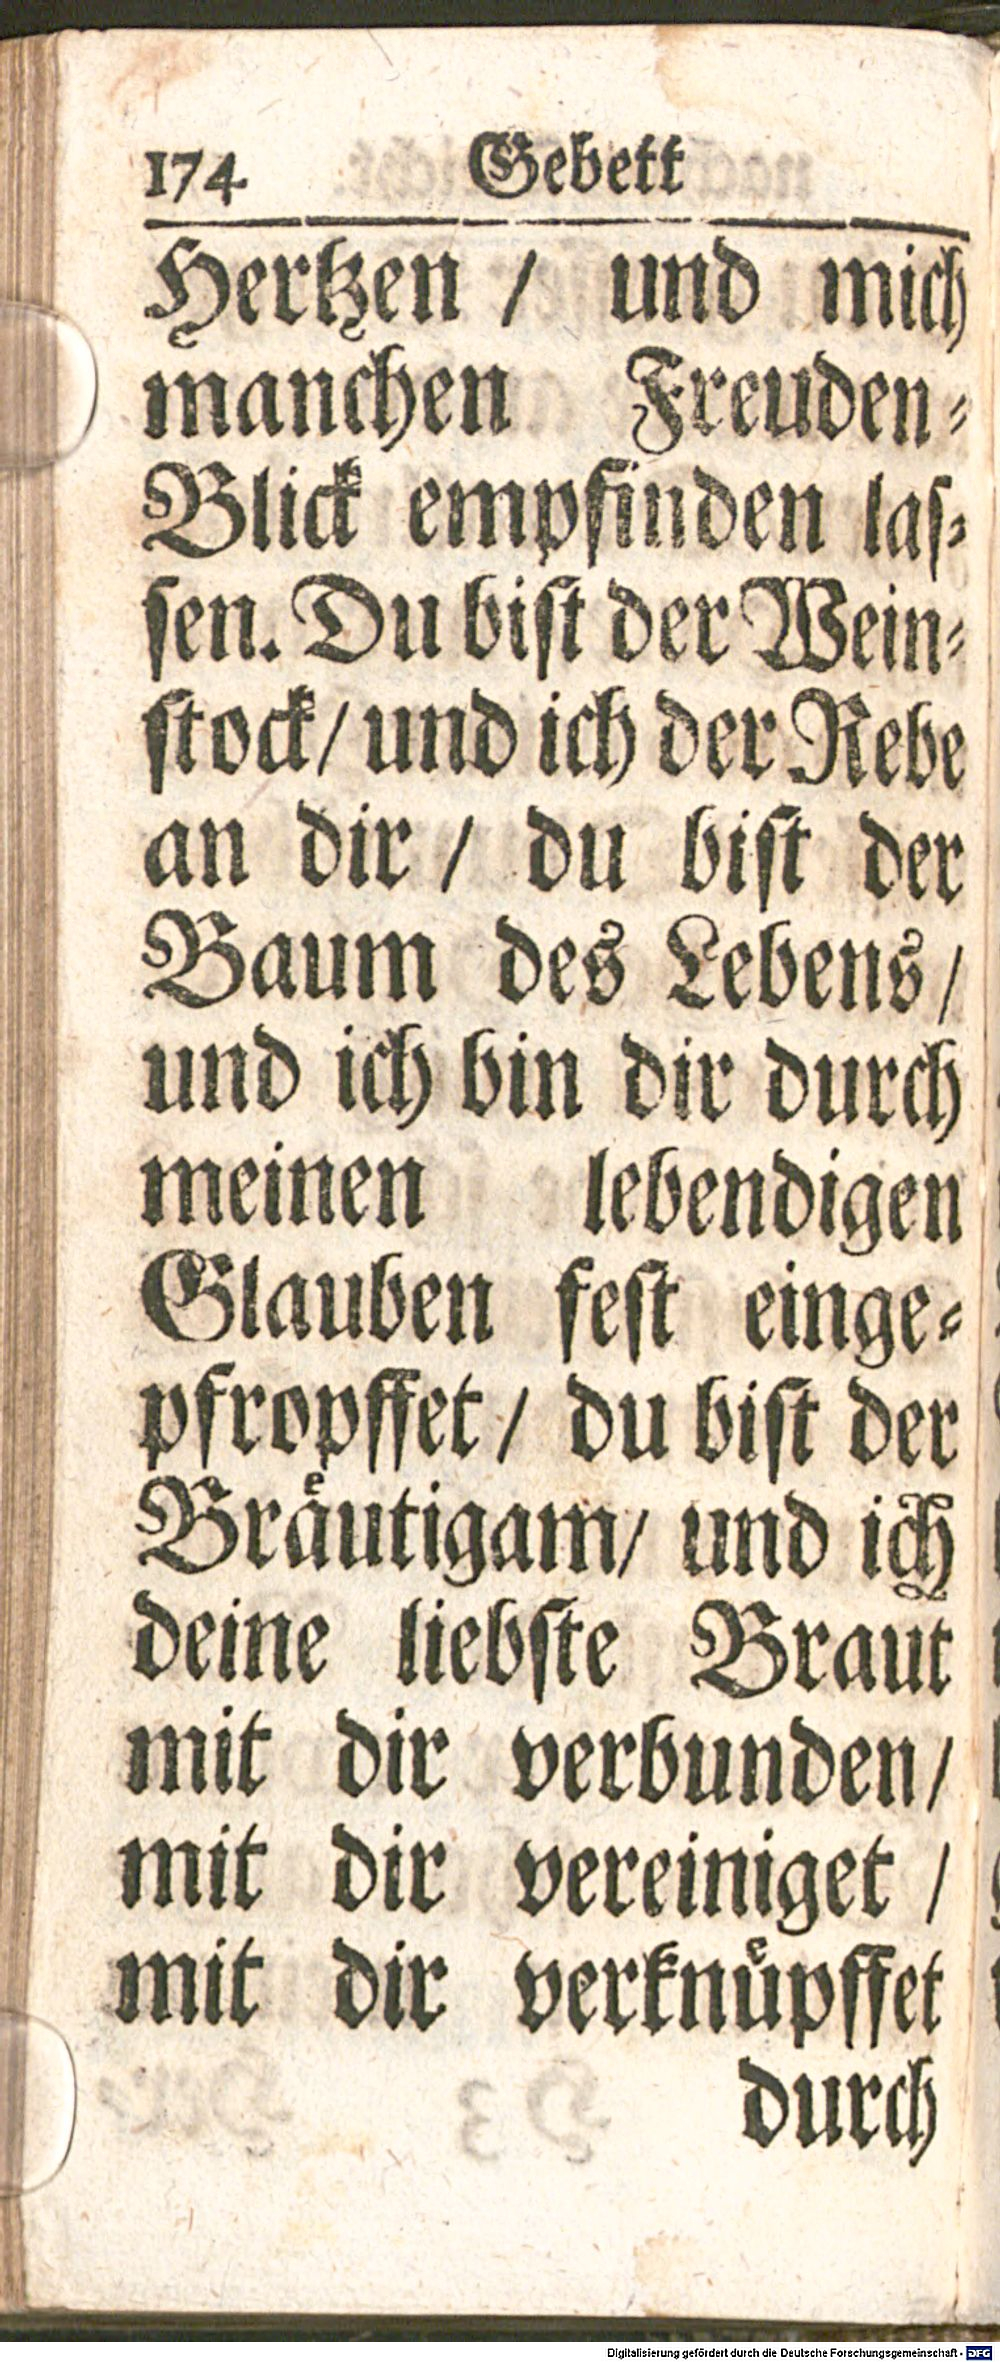 174 Gebett
Hertzen / und mich
manchen Freuden⸗
Blick empfinden laſ⸗
ſen. Du biſt der Wein⸗
ſtock/ und ich der Rebe
an dir / du biſt der
Baum des Lebens/
und ich bin dir durch
meinen lebendigen
Glauben feſt einge⸗
pfropffet / du biſt der
Braͤutigam/ und ich
deine liebſte Braut
mit dir verbunden/
mit dir vereiniget /
mit dir verknuͤpffet
durch
Digitalisierung gefördert durch die Deutsche Forschungsgemeinschaft - DFG